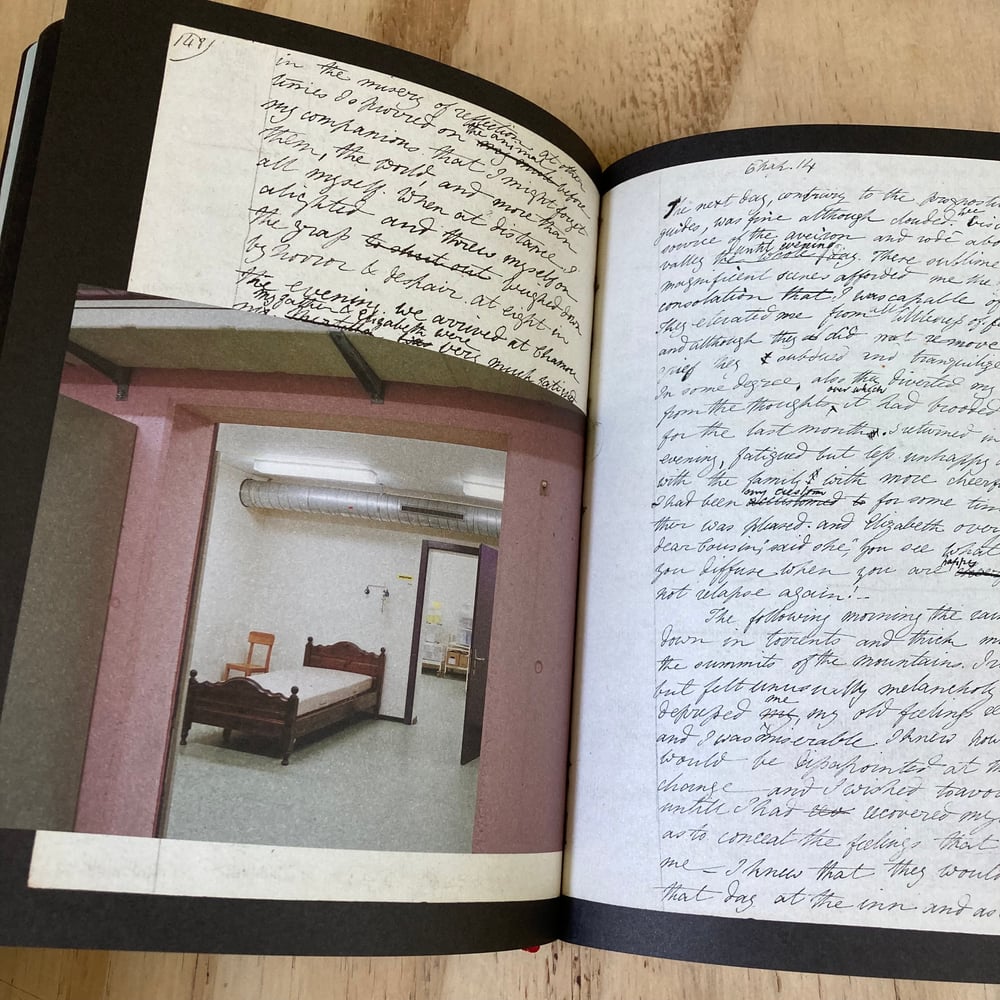 148)
in the misery of reflection. At other
times I spurred on the animal my mule before
my companions that I might forget
them, the world, and more than
all myself. When at distance I
alighted and threw myself on
the grass to shut out weighed down
by horror & despair. at eight in
the evening we arrived at Chamou
my father & Elizabeth were
very much fatigued
Chap. 14
The next day, contrary to the prognosti
guides, was fine although clouded. we
source of the aveiron and rode ab
valley until evening the whole day. These sublime
magnificent scenes afforded me the
consolation that I was capable of
They elevated me from all littleness of f
and although they did not remove
grief they subdued and tranquilize
In some degree, also they diverted my
from the thoughts over which it had brooded
for the last month. I returned in
evening, fatigued but less unhappy
with the family with more cheerf
I had been my custom accustomed to for some tim
ther was pleased. and Elizabeth over
dear cousin, said she, "you see what
you diffuse when you are happy
not relapse again! -
The following morning the rai
down in torrents and thick m
the summits of the mountains. I
but felt unusually melancholy
depressed me my old feelings
and I was miserable. I knew how
would be disappointed at th
change and I wished to avo
untill I had recovered my
as to conceal the feelings that
me - I knew that they would
that day at the inn and as